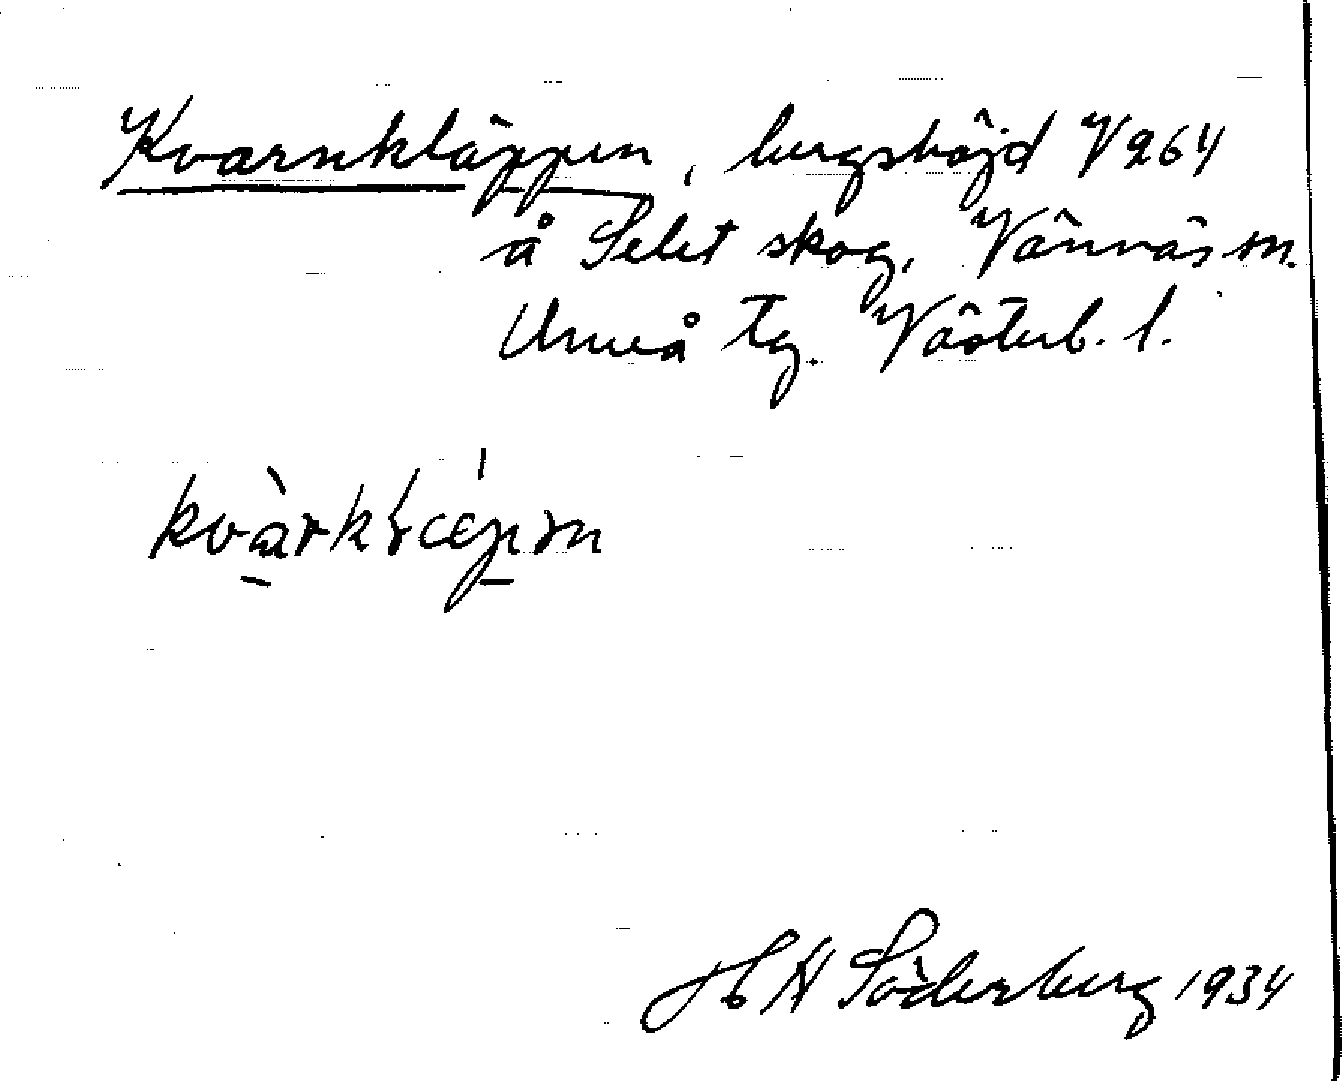 Kvarnkläppen, bergshöjd V264
å Selet skog, Vännäs sn.
Umeå tg. Västerb. l.
kvàrkɽæpən
H Söderberg 1934